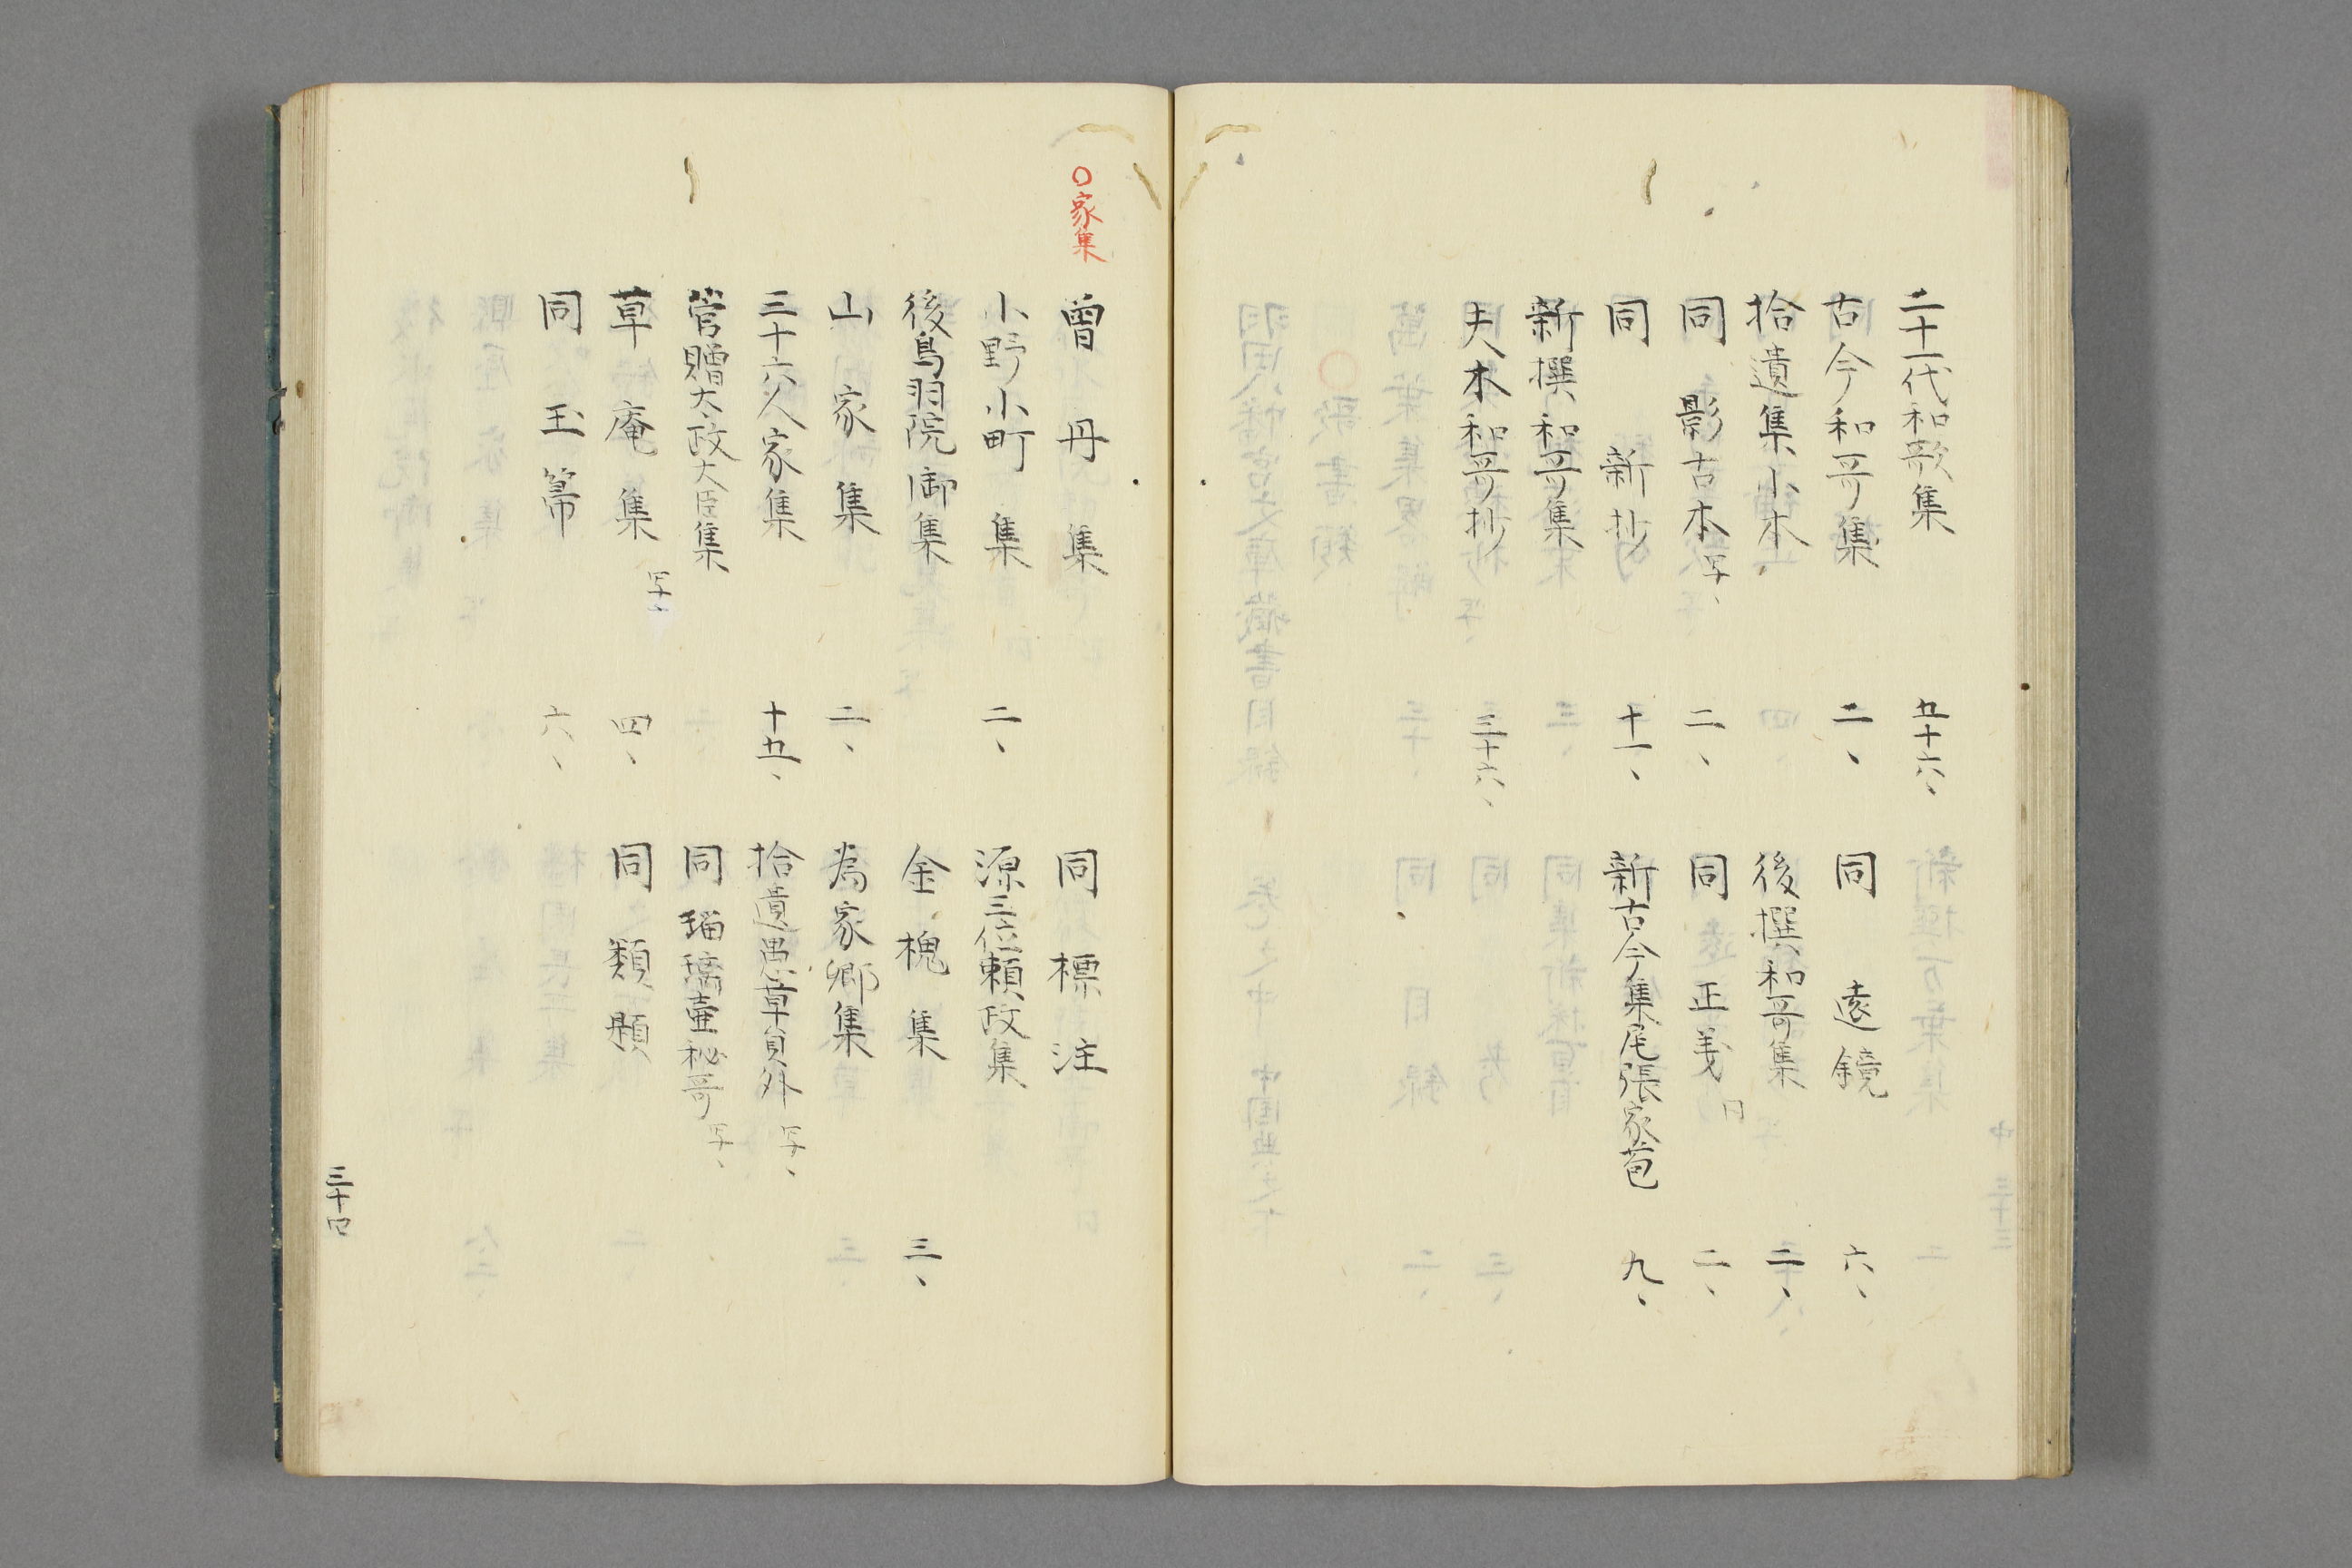 二十一代和歌集 五十六、
古今和哥集 二、 同遠鏡 六、
拾遺集小本 後撰和哥集 二、
同影古本 写、 二、 同正義 二、
同新抄 十一、 新古今集尾張家苞 九、
新撰和哥集
夫木和哥抄 三十六、
〇家集
曽丹集 同標注
小野小町集 二、 源三位頼政集
後鳥羽院御集 金槐集 三、
山家集 二、 為家卿集
三十六人家集 十五、 拾遺愚草員外 写、
菅贈大政大臣集 同瑠璃壷秘哥 写、
草庵集 写、 四、 同類題
同玉箒 六、
三十四